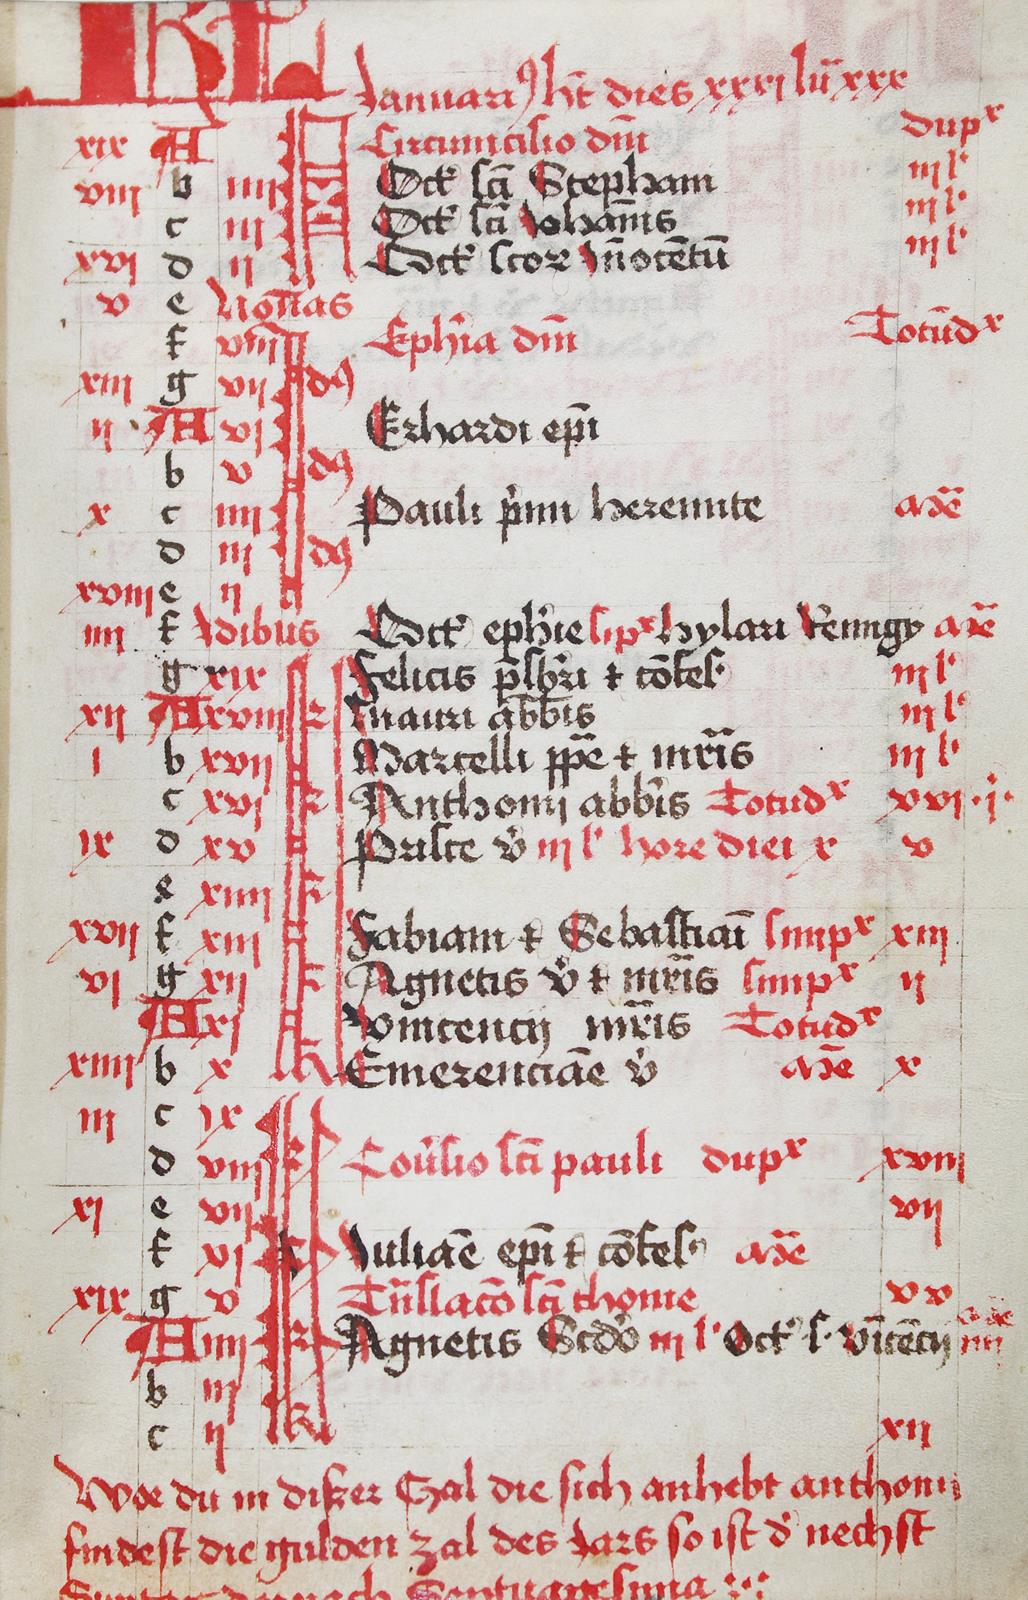 KL Januari9 ht dies xxxi lu xxx
xix A Circumcisio dni dupx
viii b iiii Oct sci Stephani iii l'
c iii Oct sci Johanis iii l'
xvi d ii Oct scor Inocetu iii l'
v e Nonas
f viii Ephia dni Totudx
xiii g vii d9
ii A vi Erhardi epi
v b v d9
x c iiii Pauli pmi heremite are
d iii d9
xviii e ii
iiii f Idibus Oct ephie sipx hylari Remigy are
g xix Felicis psbri t cofes iii l'
xii A xviii k Mauri abbis iii l'
i b xvii Marcelli ppe t mris iii l'
c xvi k Anthonij abbis Totudx v vi i
ix d xv Prisce v iii l' hore diei x v
e xiiii k
xvii f xiii Fabiani t Sebastiani simpx xiii
vi g xii k Agnetis v t mris simpx ii
A xi Vincencij mris Totudx
xiiii b x k Emerenciae v are x
iii c ix
d viii k Couersio sci pauli dupx xviii
xi e vii vii
f vi k Juliae epi t cofes are
xix g v Tnslaco sci thome v v
A iiii k Agnetis Scdo iii l' Oct s vicecij
b iii
c ii k xii
Woe du in diszer Zal die sich anhebt anthonii
findest die gulden zal des Jars so ist d nechst
Suntag darnach Septuagesima